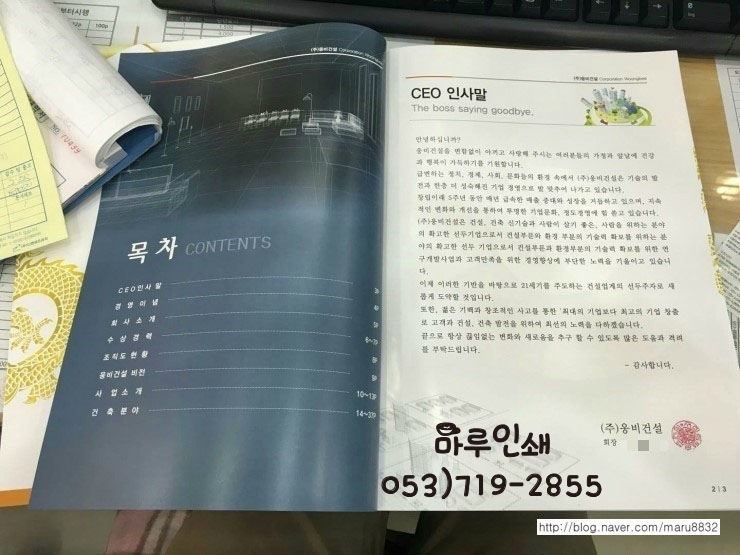 부터시행
100p
No 70459
(주)웅비건설 Corporation Woongbee
목 차 CONTENTS
CEO인사 말
경 영 이 념
회 사 소 개
수 상 경 력
6~7P
조직도현황
웅비건설 비전
사 업 소 개
10~13P
건 축 분 야
14~37P
(주)웅비건설 Corporation Woongbee
CEO 인사말
The boss saying goodbye.
안녕하십니까?
웅비건설을 변함없이 아끼고 사랑해 주시는 여러분들의 가정과 앞날에 건강
과 행복이 가득하기를 기원합니다.
급변하는 정치, 경제, 사회, 문화등의 환경 속에서 (주)웅비건설은 기술의 발
전과 한층 더 성숙해진 기업 경영으로 발 맞추어 나가고 있습니다.
창립이래 5주년 동안 매년 급속한 매출 증대와 성장을 거듭하고 있으며, 지속
적인 변화와 개선을 통하여 투명한 기업문화, 정도경영에 힘 쏟고 있습니다.
(주)웅비건설은 건설, 건축 신기술과 사람이 살기 좋은, 사람을 위하는 분야
의 확고한 선두기업으로서 건설부문과 환경 부문의 기술력 확보를 위하는 분
야의 확고한 선두 기업으로서 건설부문과 환경부문의 기술력 확보를 위한 연
구개발사업과 고객만족을 위한 경영향상에 부단한 노력을 기울이고 있습니
다.
이제 이러한 기반을 바탕으로 21세기를 주도하는 건설업계의 선두주자로 새
롭게 도약할 것입니다.
또한, 젊은 기백과 창조적인 사고를 통한 '최대의 기업보다 최고의 기업 창출
로 고객과 건설, 건축 발전을 위하여 최선의 노력을 다하겠습니다.
끝으로 항상 끊임없는 변화와 새로움을 추구 할 수 있도록 많은 도움과 격려
를 부탁드립니다.
- 감사합니다.
(주)웅비건설
회장
마루인쇄
053)719-2855
2 | 3
http://blog.naver.com/maru8832